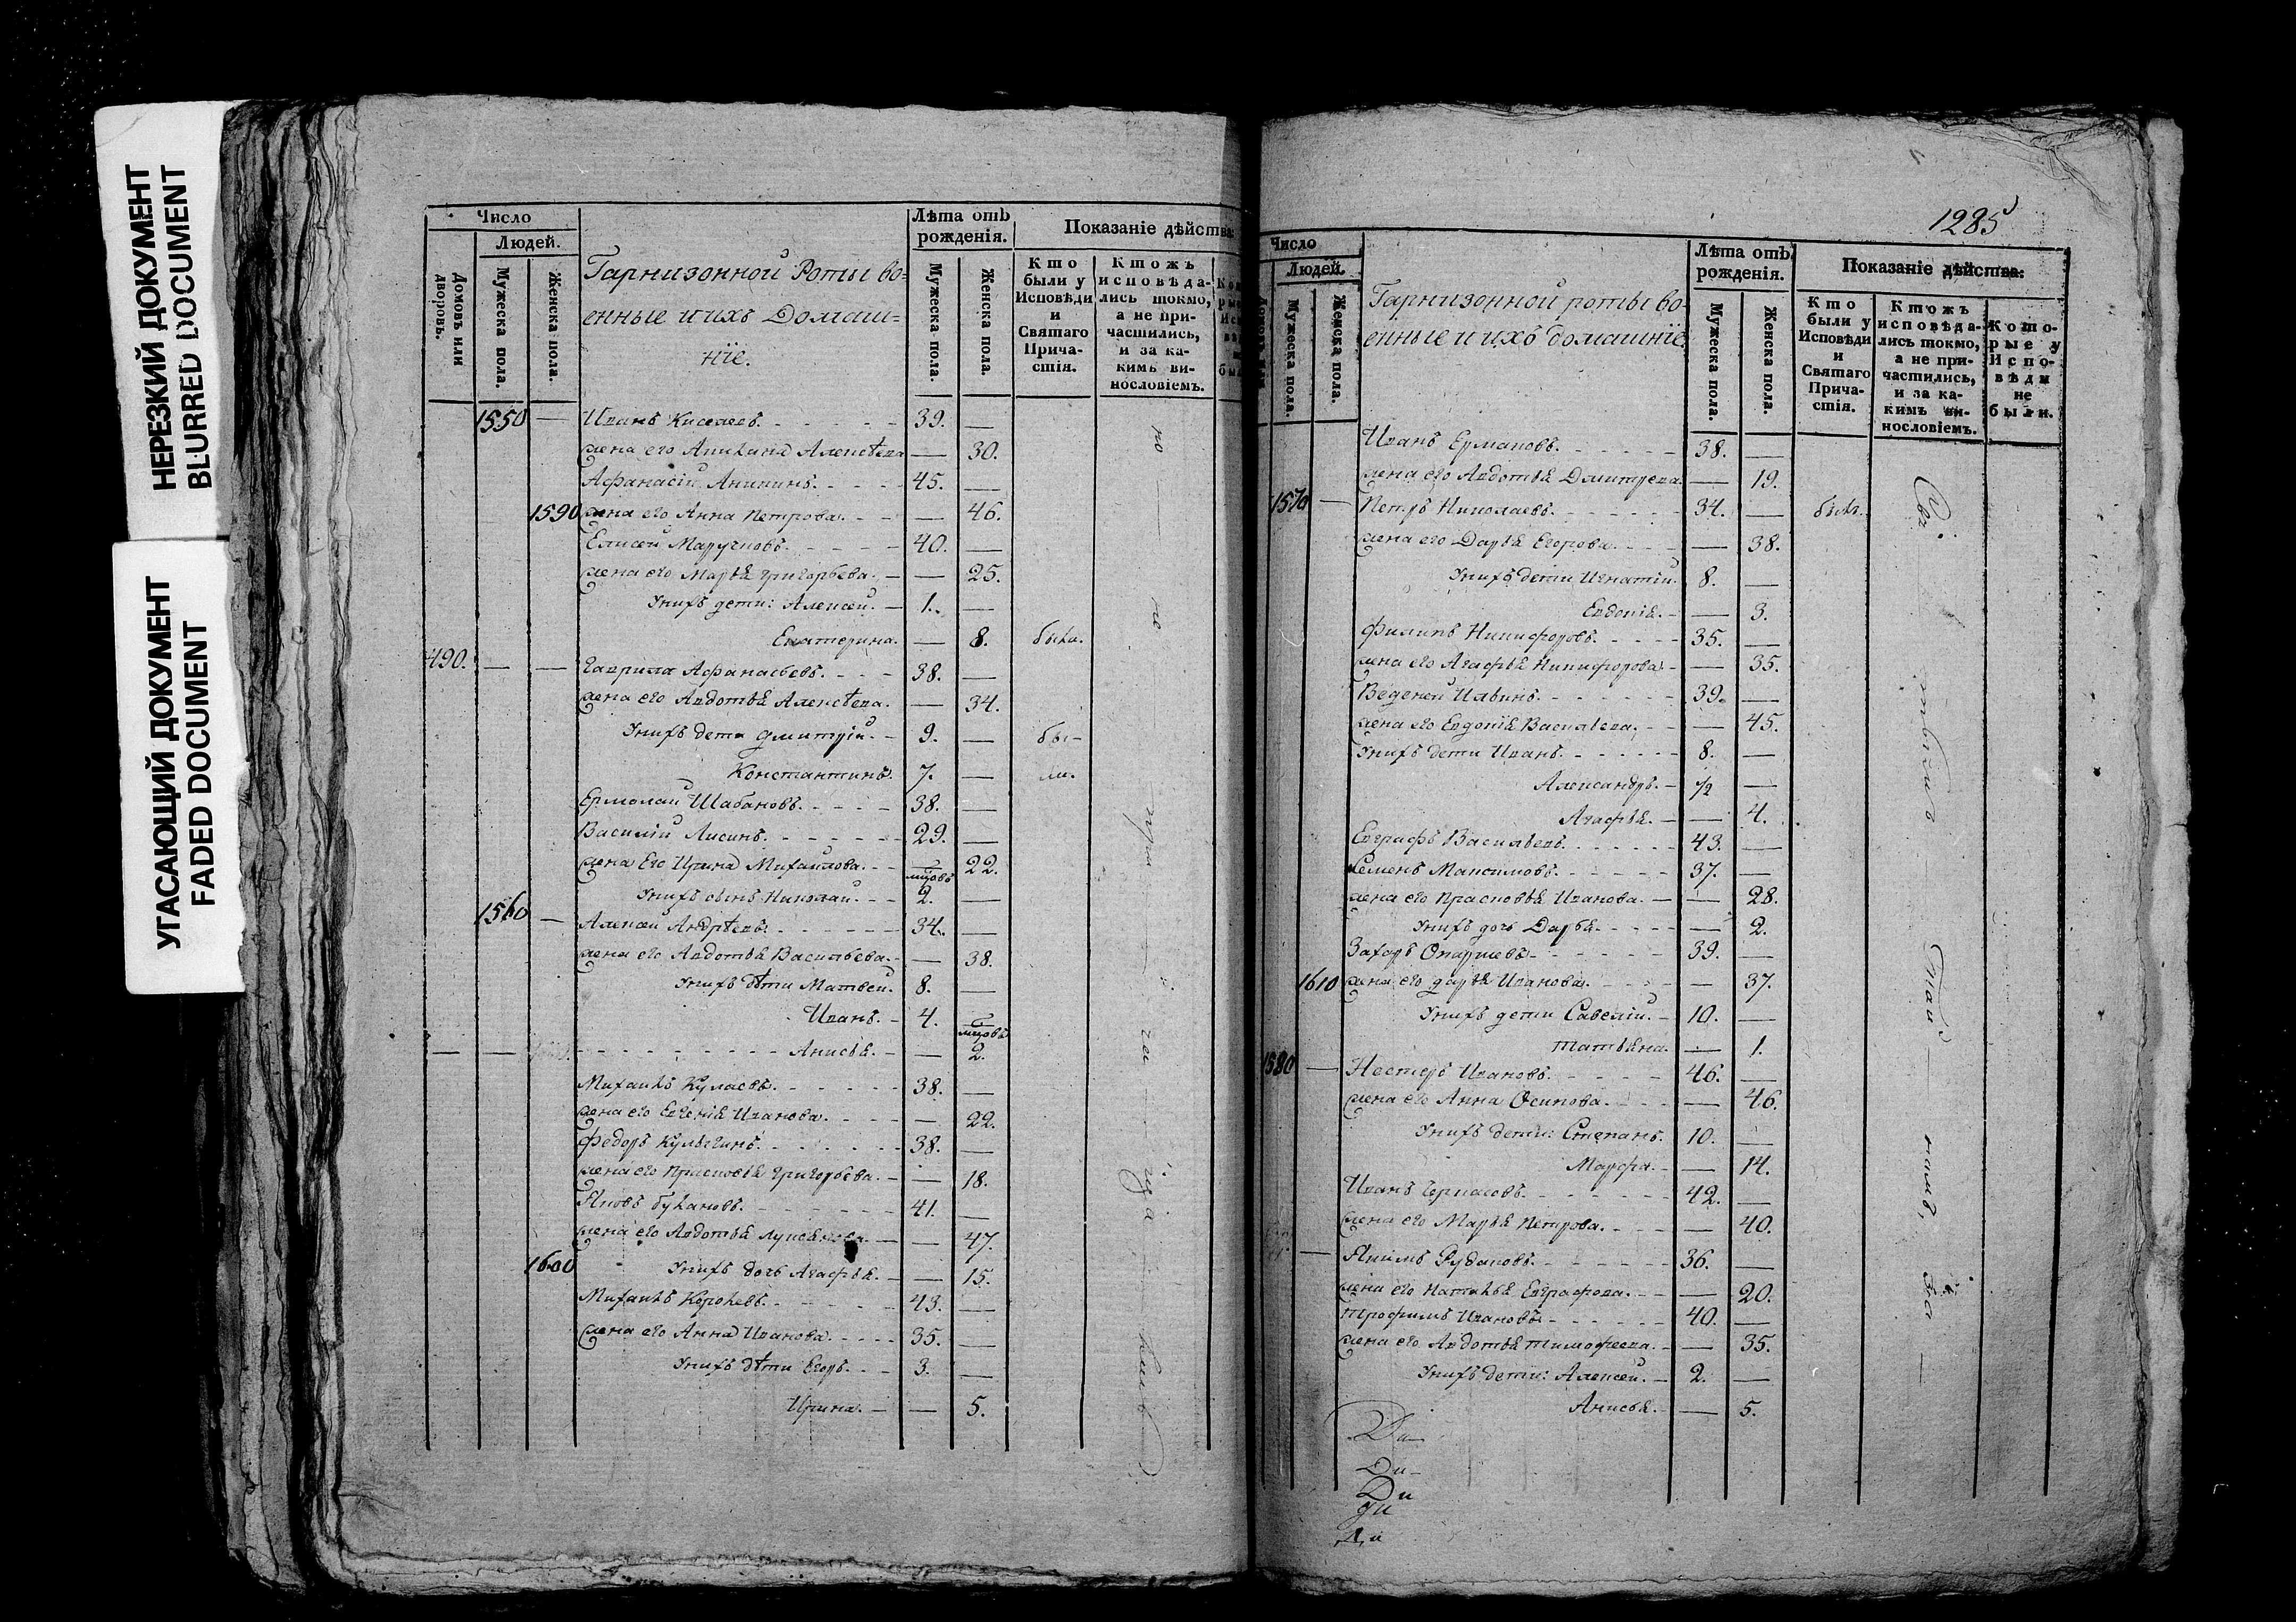 НЕРЕЗКИЙ ДОКУМЕНТ
BLURRED DOCUMENT
УГАСАЮЩИЙ ДОКУМЕНТ
FADED DOCUMENT
Число
Людей.
Домовъ или дворовъ.
Мужеска пола.
Женска пола.
Гарнизонной Роты во=
енные и ихъ Домаш=
нїе.
Лѣта отъ рожденія.
Мужеска пола.
Женска пола.
Показаніе дѣйства
Кто были у Исповѣди и Святаго Прича-стія.
Ктожъ исповѣда-лись токмо, а не при-частились, и за ка-кимъ ви-нословіемъ.
1550 — Иванъ Киселевъ. 39. —
жена его Алексѣева — 30.
Афанасій Аникинъ. 45. —
1590 жена его Анна Петрова. — 46.
Елисей 40. —
жена его Марья Григорьева. — 25.
У нихъ дети: Алексей. 1. —
Екатерина. — 8. были.
490. — — Гаврила Афанасьевъ. 38. —
жена его Авдотья Алексѣева. — 34.
У нихъ дети Дмитрій. 9. — бы-
Константинъ. 7. — ли.
Ермолай Шабановъ. 38. —
Василій Лисинъ. 29. —
жена Его Ирина Михайлова. — 22.
У нихъ сынъ Николай. мцовъ 2. —
1560 — Алексей Андрѣевъ. 34. —
жена его Авдотья Васильева. — 38.
У нихъ дѣти Матвей. 8. —
Иванъ. 4. —
— — Анисья. — мцовъ 2.
Михайла 38. —
жена его Евгенія Иванова. — 22.
Федоръ 38. —
жена его Прасковья Григорьева. — 18.
Яковъ 41. —
жена его Авдотья — 47.
1600 У нихъ дочь Агафья. — 15.
Михайла 43. —
жена его Анна Иванова. 35. —
У нихъ дѣти Егоръ. 3. —
Ирина. — 5.
1285
Число
Людей.
Мужеска пола.
Женска пола.
Гарнизонной роты во-
енные и ихъ домашнїе.
Лѣта отъ рожденія.
Мужеска пола.
Женска пола.
Показаніе дѣйства:
Кто были у Исповѣди и Святаго Прича-стія.
Ктожъ исповѣда-лись токмо, а не при-частились, и за ка-кимъ ви-нословіемъ.
Кото-рые у Испо-вѣди не были.
Иванъ Ермаковъ. 38. —
жена его Авдотья Дмитрева. — 19.
1570 — Петръ Николаевъ. 34. —
жена его Дарья Егорова. — 38.
У нихъ дети Игнатій. 8. —
Евдокія. — 3.
Филипъ Никифоровъ. 35. —
жена его Агафья Никифорова. — 35.
Веденей Ильинъ. 39. —
жена его Евдокія Васильева. — 45.
У нихъ дети Иванъ. 8. —
Александръ. ½ —
Агафья. — 4.
Евграфъ Васильевъ. 43. —
Семенъ Максимовъ. 37. —
жена его Прасковья Иванова. — 28.
У нихъ дочь Дарья. — 2.
Захаръ 39. —
1610 жена его Дарья Иванова. — 37.
У нихъ дети Савелій. 10. —
Татьяна. — 1.
1580 — Несторъ Ивановъ. 46. —
жена его Анна Осипова. — 46.
У нихъ дети: Степанъ. 10. —
Марфа. — 14.
Иванъ Черкасовъ. 42. —
жена его Марья Петрова. — 40.
— Якимъ Рудаковъ. 36. —
жена его Наталья Евграфова. — 20.
Трофимъ Ивановъ. 40. —
жена его Авдотья Тимофеева. — 35.
У нихъ дети: Алексей. 2. —
Анисья. — 5.
Ди